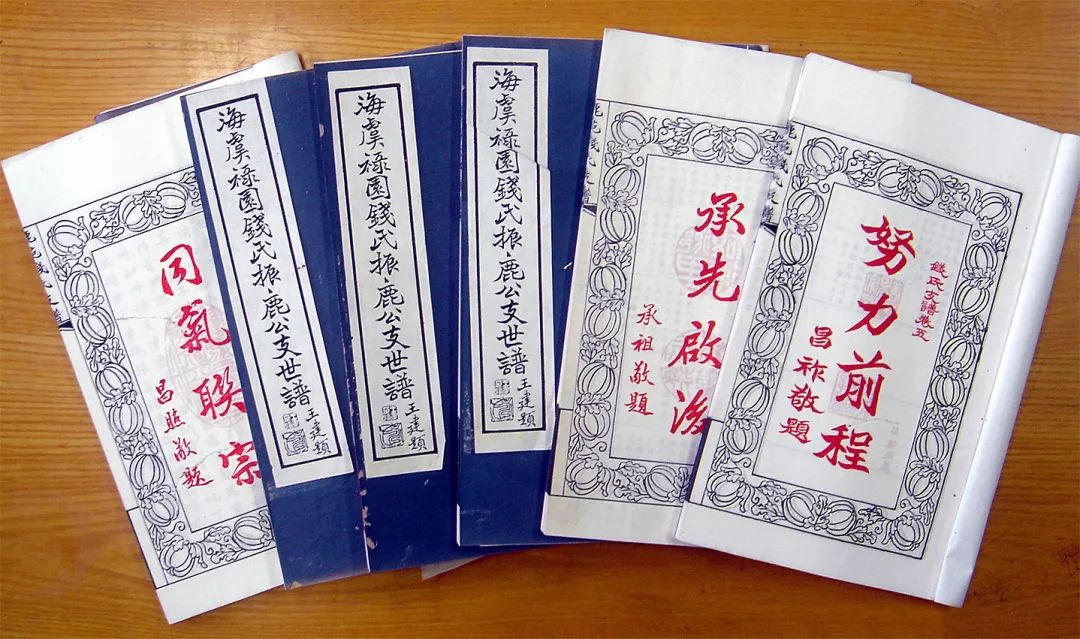 同氣聯宗
敬題
海虞祿園錢氏振鹿公支世譜
王建題
海虞祿園錢氏振鹿公支世譜
王建題
海虞祿園錢氏振鹿公支世譜
王建題
承先啟後
承祖敬題
錢氏支譜卷五
努力前程
昌祚敬題